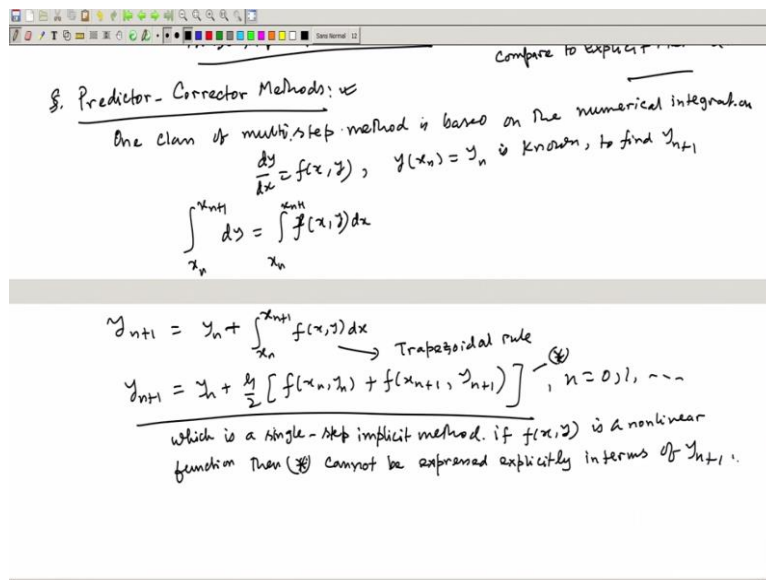 Sans Normal 12
compare to explicit
§. Predictor-Corrector Methods:
One class of multi-step method is based on the numerical integration
dy/dx = f(x, y), y(x_n) = y_n is known, to find y_{n+1}
∫_{x_n}^{x_{n+1}} dy = ∫_{x_n}^{x_{n+1}} f(x, y) dx
y_{n+1} = y_n + ∫_{x_n}^{x_{n+1}} f(x, y) dx
→ Trapezoidal rule
y_{n+1} = y_n + h/2 [f(x_n, y_n) + f(x_{n+1}, y_{n+1})] (*), n = 0, 1, ---
which is a single-step implicit method. if f(x, y) is a nonlinear
function then (*) cannot be expressed explicitly in terms of y_{n+1}.